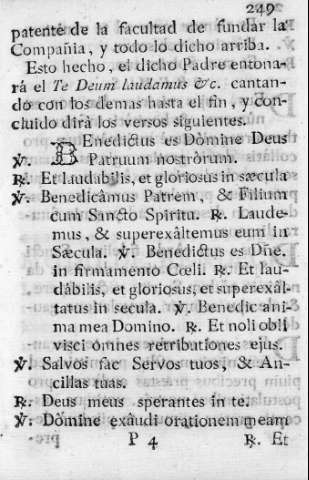 249
patente de la facultad de fundar la
Compañia, y todo lo dicho arriba.
Esto hecho, el dicho Padre entona-
rá el Te Deum laudamus &c. cantan-
do con los demas hasta el fin, y con-
cluido dirà los versos siguientes.
℣. Benedictus es Dòmine Deus
Patruum nostròrum.
℟. Et laudabilis, et gloriosus in sæcula
℣. Benedicâmus Patrem, & Filium
cum Sancto Spiritu. ℟. Laude-
mus, & superexâltemus eum in
Sæcula. ℣. Benedictus es Dñe.
in firmamento Cœli. ℟. Et lau-
dâbilis, et gloriosus, et superexâl-
tatus in secula. ℣. Benedic ani-
ma mea Domino. ℟. Et noli obli
visci òmnes retributiones ejus.
℣. Salvos fac Servos tuos, & An-
cillas tuas.
℟. Deus meus sperantes in te.
℣. Dòmine exâudi orationem meam
P 4 ℟. Et